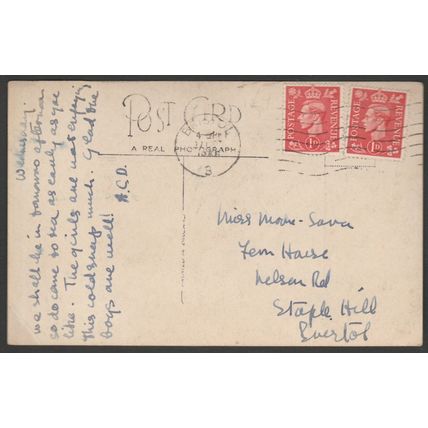 POST CARD
A REAL PHOTOGRAPH
POSTAGE REVENUE
1D
POSTAGE REVENUE
1D
Wednesday
we shall be in tomorrow afternoon
so do come to tea as early as you
like. The girls are not enjoying
this cold snap much. Glad the
boys are well!
Miss Moore-Sava
Fern House
Nelson Rd
Staple Hill